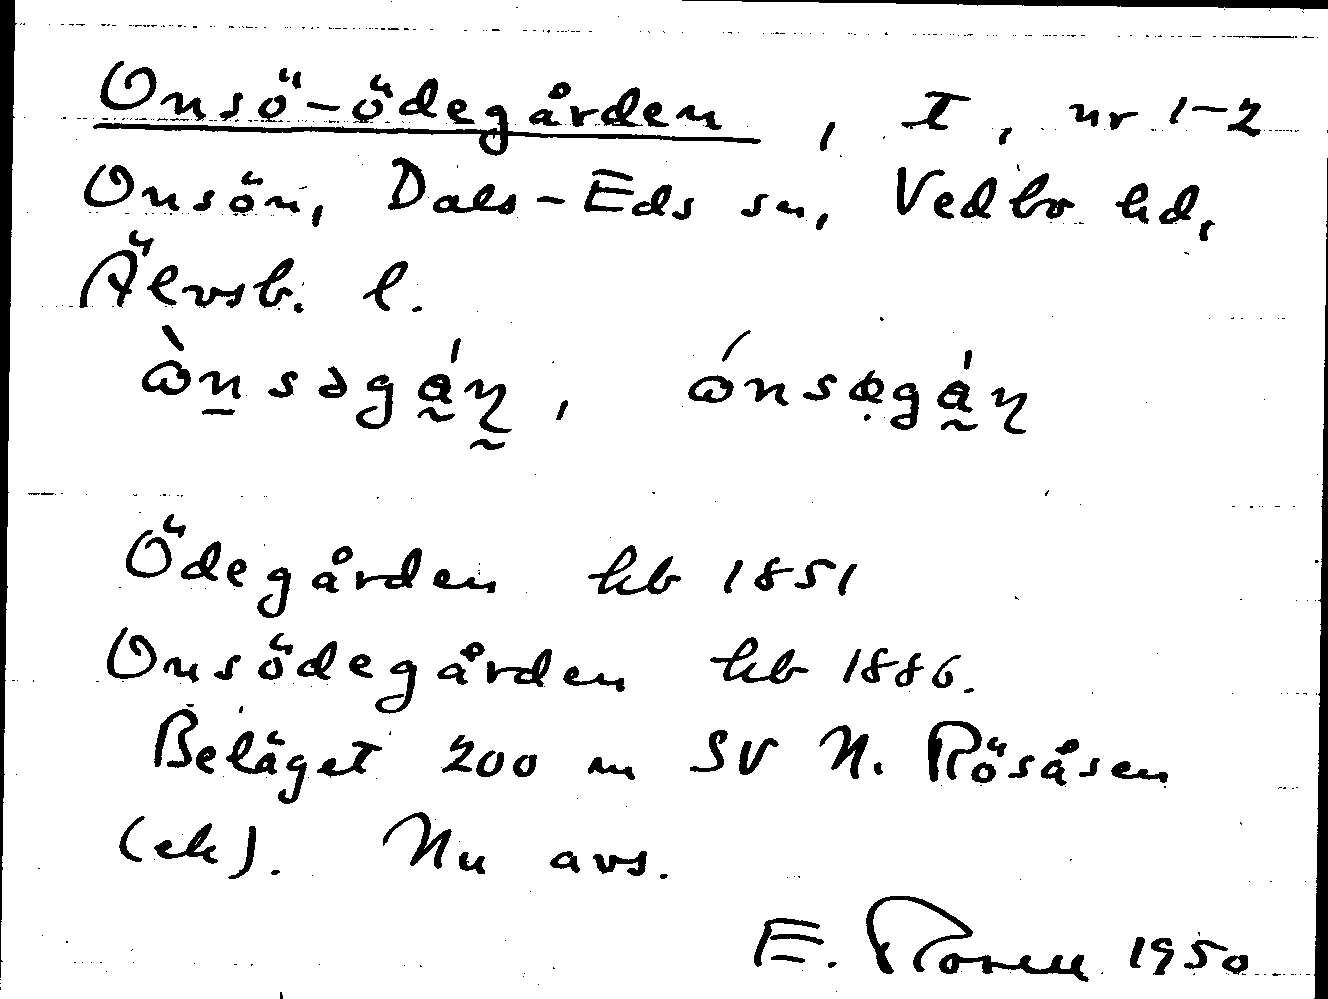 Onsö-ödegården, t, nr 1-2
Onsön, Dals-Eds sn, Vedbo hd,
Älvsb. l.
Ödegården hb 1851
Onsödegården hb 1886.
Beläget 200 m SV N. Rösåsen
(ek). Nu avs.
E. 1950